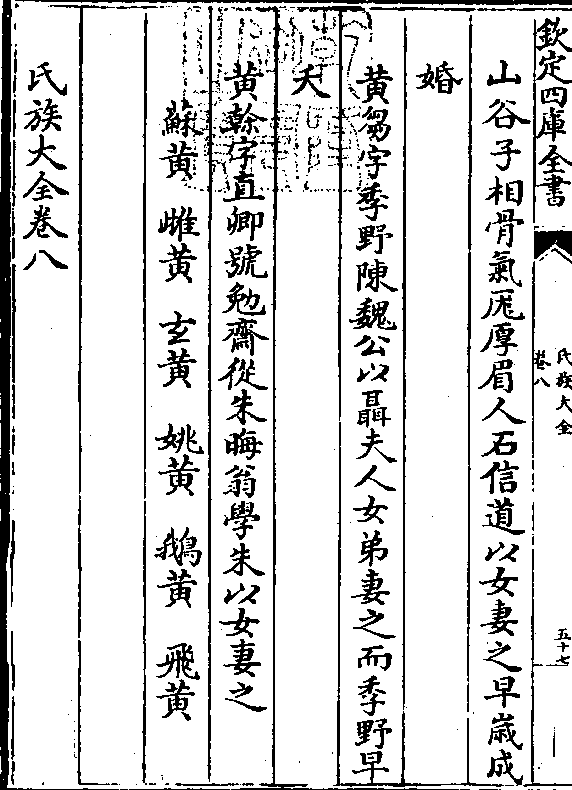 欽定四庫全書
氏族大全
卷八
五十七
山谷子相骨氣厖厚眉人石信道以女妻之早歲成
婚
黄芻字季野陳魏公以聶夫人女弟妻之而季野早
夭
黄榦字直卿號勉齋從朱晦翁學朱以女妻之
蘇黄 雌黄 玄黄 姚黄 鵝黄 飛黄
氏族大全卷八